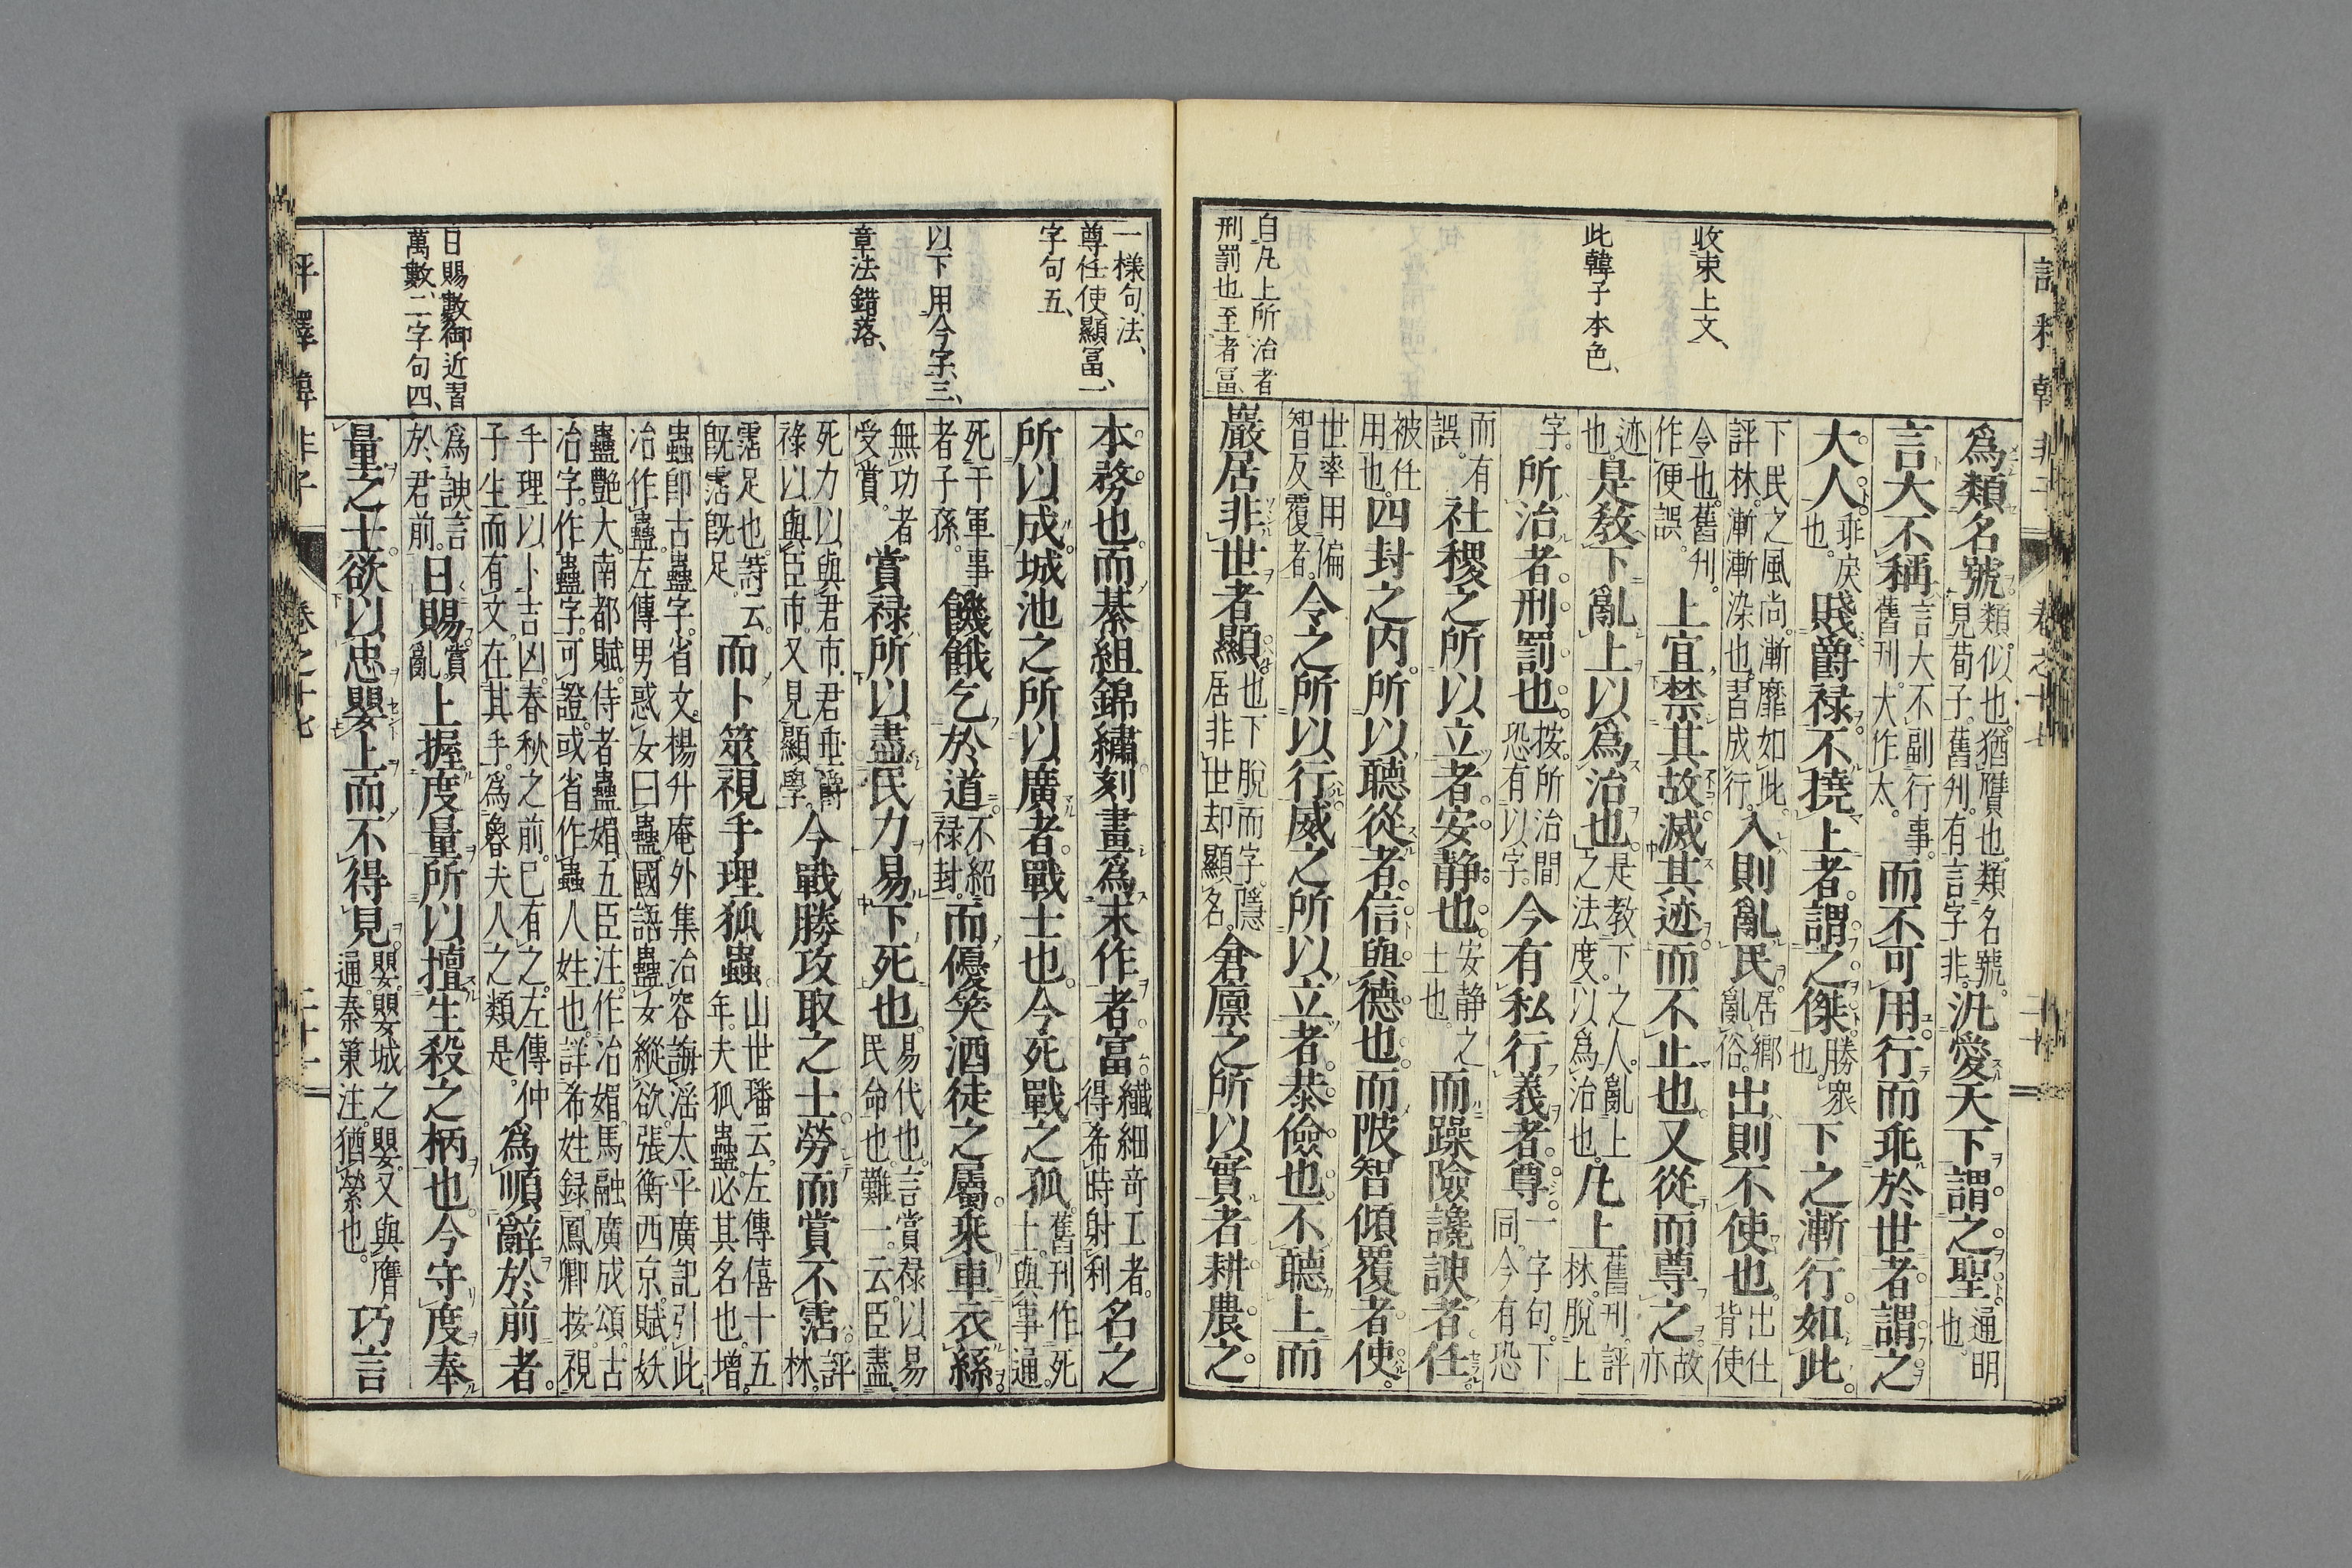 收束上文、
此韓子本色、
自凡上所治者
刑罰也至者冨
爲類名號類似也。猶贋也。類名號。見荀子。舊刋。有言字。非。汎愛天下謂之聖。通明也。
言大不稱言大不副行事。舊刋。大作太。而不可用。行而乖於世者。謂之
大人。乖戻也。賤爵祿。不撓上者。謂之傑。勝衆也。下之漸行如此。
下民之風尚。漸靡如此。評林。漸漸染也。習成行。入則亂民。居鄉亂俗。出則不使也。出仕背使
令也。舊刋。作便誤。上宜禁其故滅其迹。而不止也。又從而尊之。故亦
迹也。是敎下亂上以爲治也。是教下之人。亂上之法度。以爲治也。凡上舊刋。評林。脫上
字。所治者。刑罰也。按。所治間恐有以字。今有私行義者。尊。一字句。下同。今有恐
而有誤。社稷之所以立者。安静也。安静之士也。而躁險讒諛者任。
被任用也。四封之内。所以聽從者。信與德也。而陂智傾覆者使。
世率用偏智反覆者。令之所以行。威之所以立者。恭儉也。不聽上而
巖居非世者顯。也下脫而字。隱居非世却顯名。倉廩之所以實者耕農之。
一樣句法、
尊任使顯冨、一
字句五、
以下用今字三、
章法錯落、
日賜數御近習
萬數、二字句四、
本務也。而綦組錦繡刻畫爲末作者。富。纎細竒工者。得希時射利名之
所以成。城池之所以廣者。戰士也。今死戰之孤。舊刋作死士。與事通。
死于軍事者子孫。饑餓乞於道。不紹禄封。而優笑酒徒之屬。乘車衣絲。
無功者受賞。賞禄。所以盡民力易下死也。易代也。言賞祿以易民命也。難一。云。臣盡
死力以與君市君垂爵祿以與臣市。又見顯學。今戰勝攻取之士。勞而賞不霑評林。
霑足也。詩云。旣霑旣足。而卜筮視手理狐蠱。山世璠云。左傳僖十五年。夫狐蠱必其名也。增。
蟲卽古蠱字。省文。楊升庵外集。冶容誨淫。太平廣記引。此冶作蠱。左傳男惑女曰蠱。國語蠱女縱欲。張衡西京賦。妖
蠱艷大。南都賦。侍者蠱媚。五臣注。作冶媚。馬融廣成頌。古冶字。作蠱字。可證。或省作蟲人姓也。詳希姓録。鳳卿按。視
手理以卜吉凶。春秋之前。已有之。左傳仲子生而有文。在其手。爲魯夫人之類是。爲順辭於前者。
爲諛言於君前。日賜。賞亂。上握度量。所以擅生殺之柄也。今守度奉
量之士。欲以忠嬰上而不得見。嬰。嬰城之嬰。又與膺通。秦策注。猶縈也。巧言